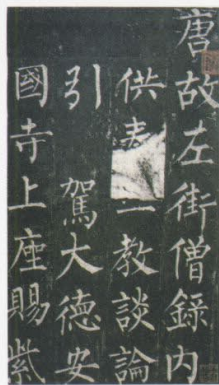 唐故左街僧錄內
供奉教談論
引駕大德安
國寺上座賜紫